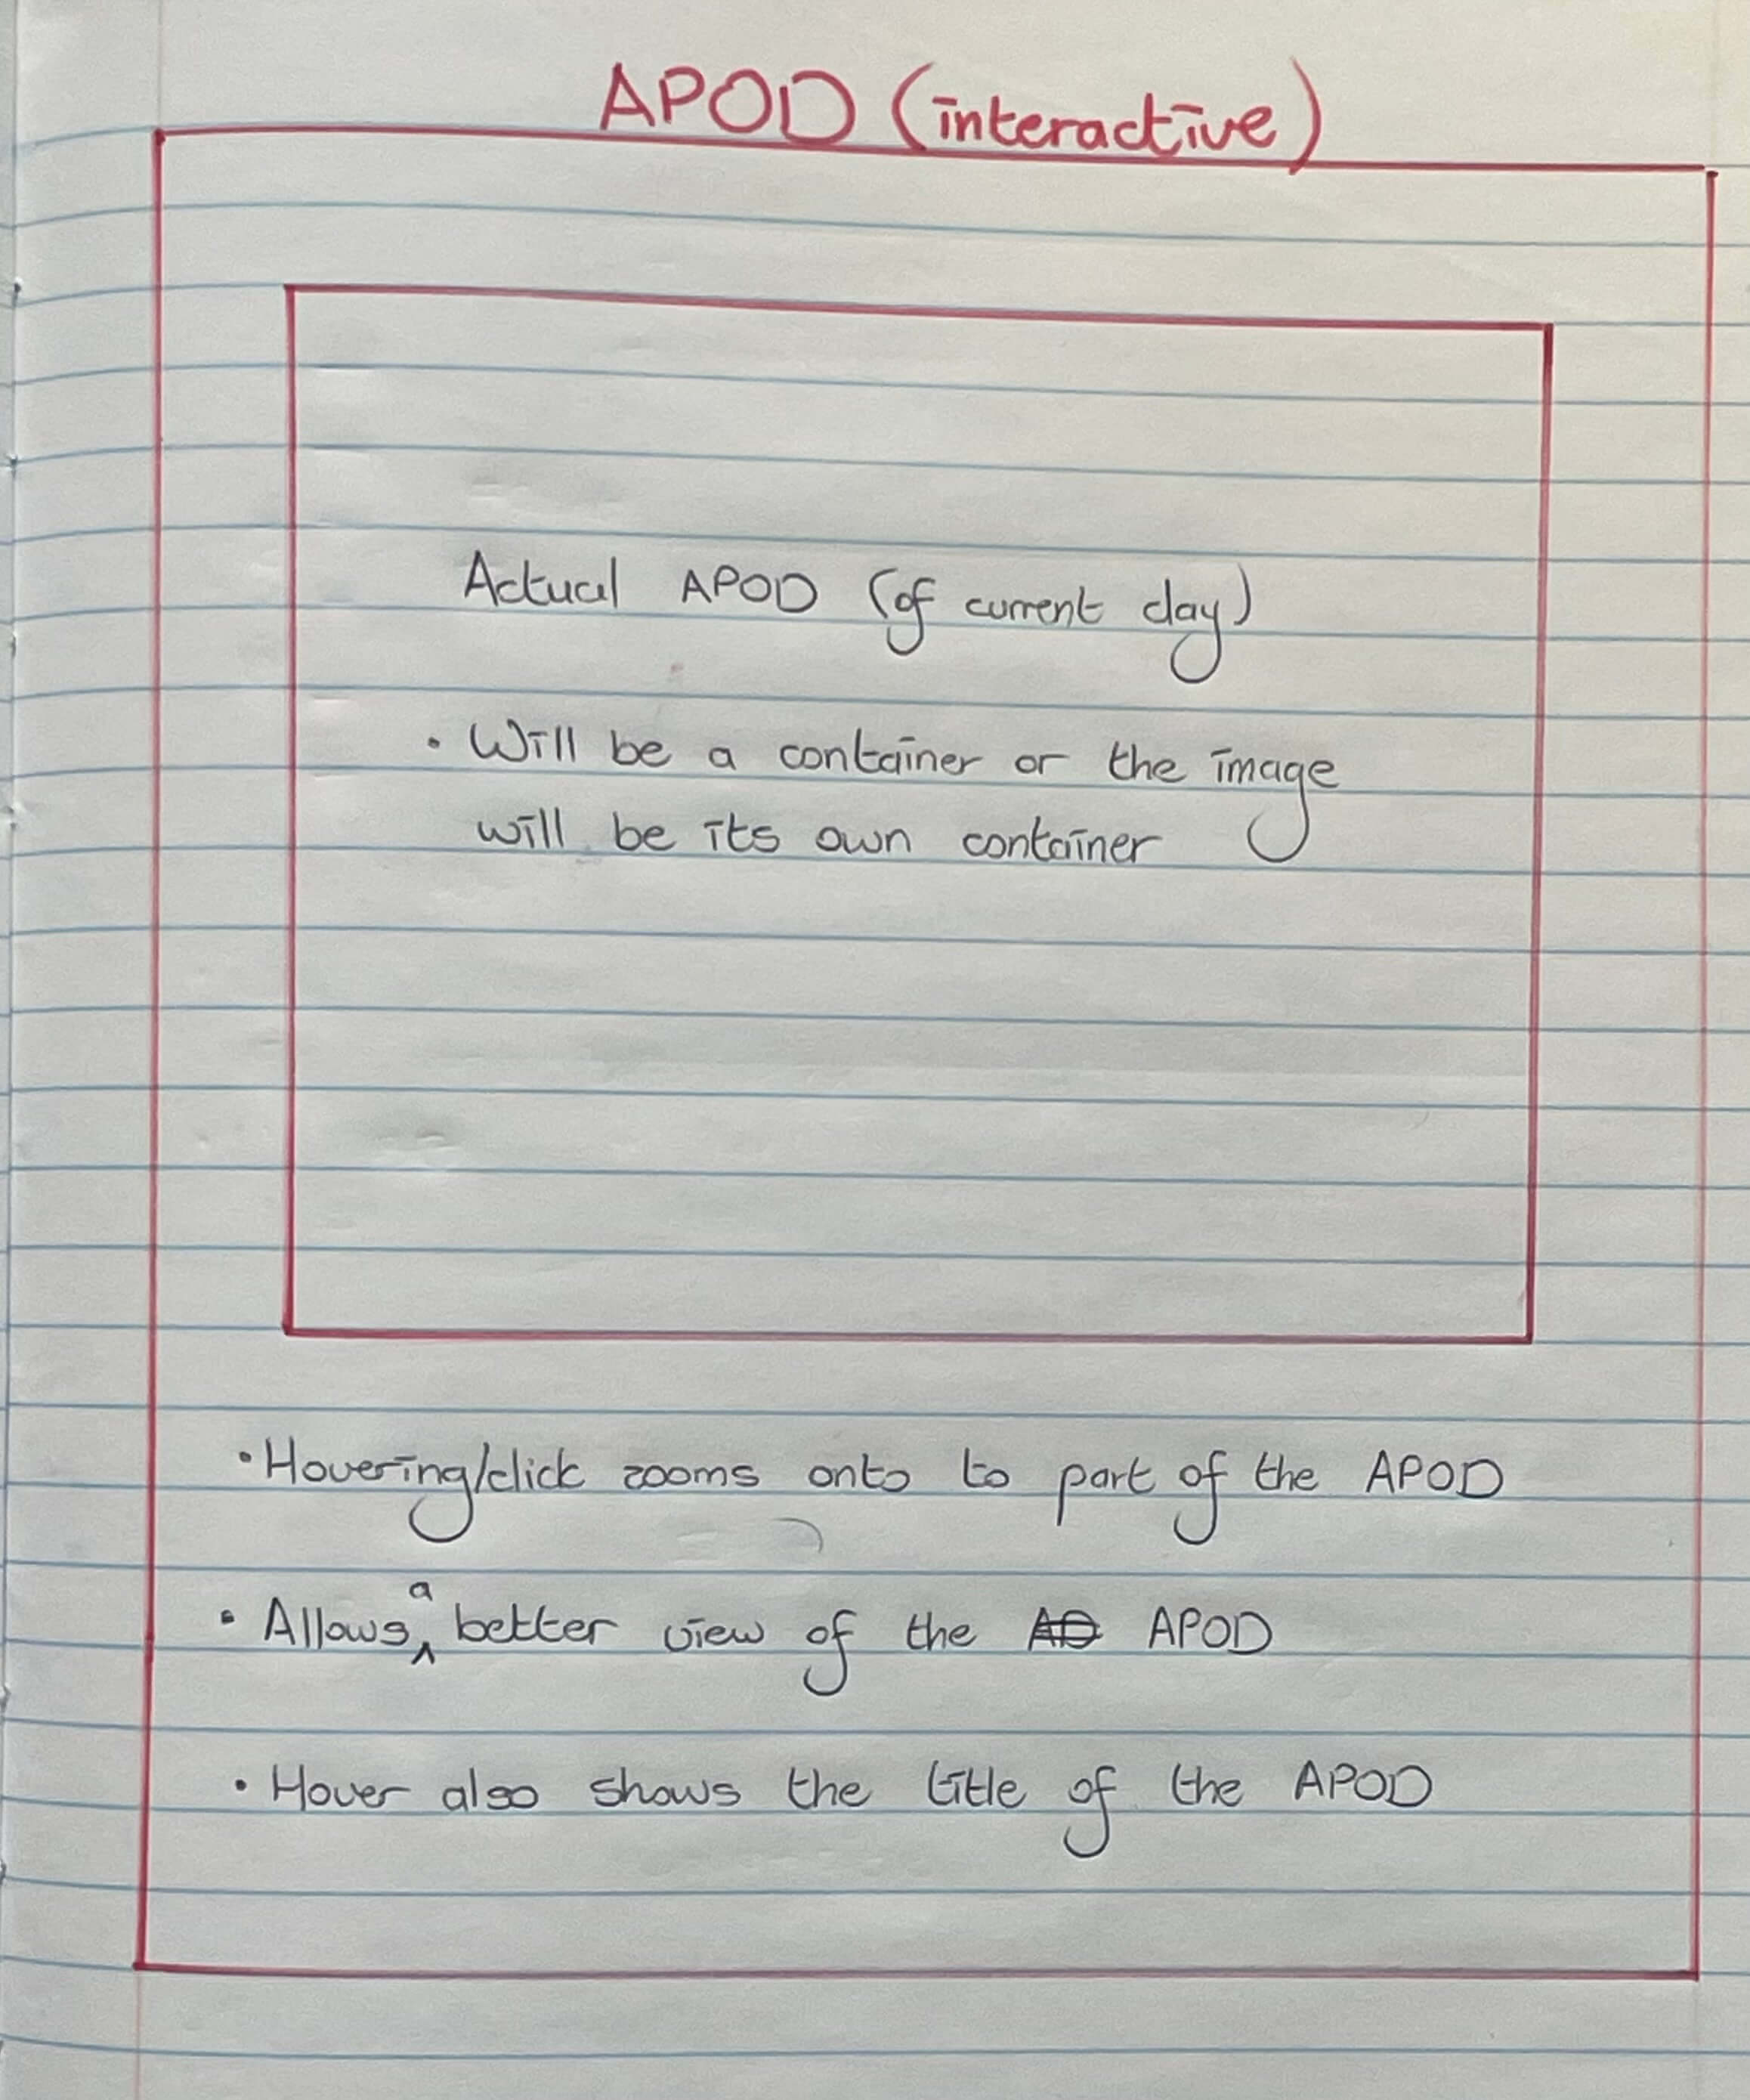 APOD (interactive)
Actual APOD (of current day)
• Will be a container or the image
will be its own container
• Hovering/click zooms onto to part of the APOD
• Allows a better view of the AO APOD
• Hover also shows the title of the APOD